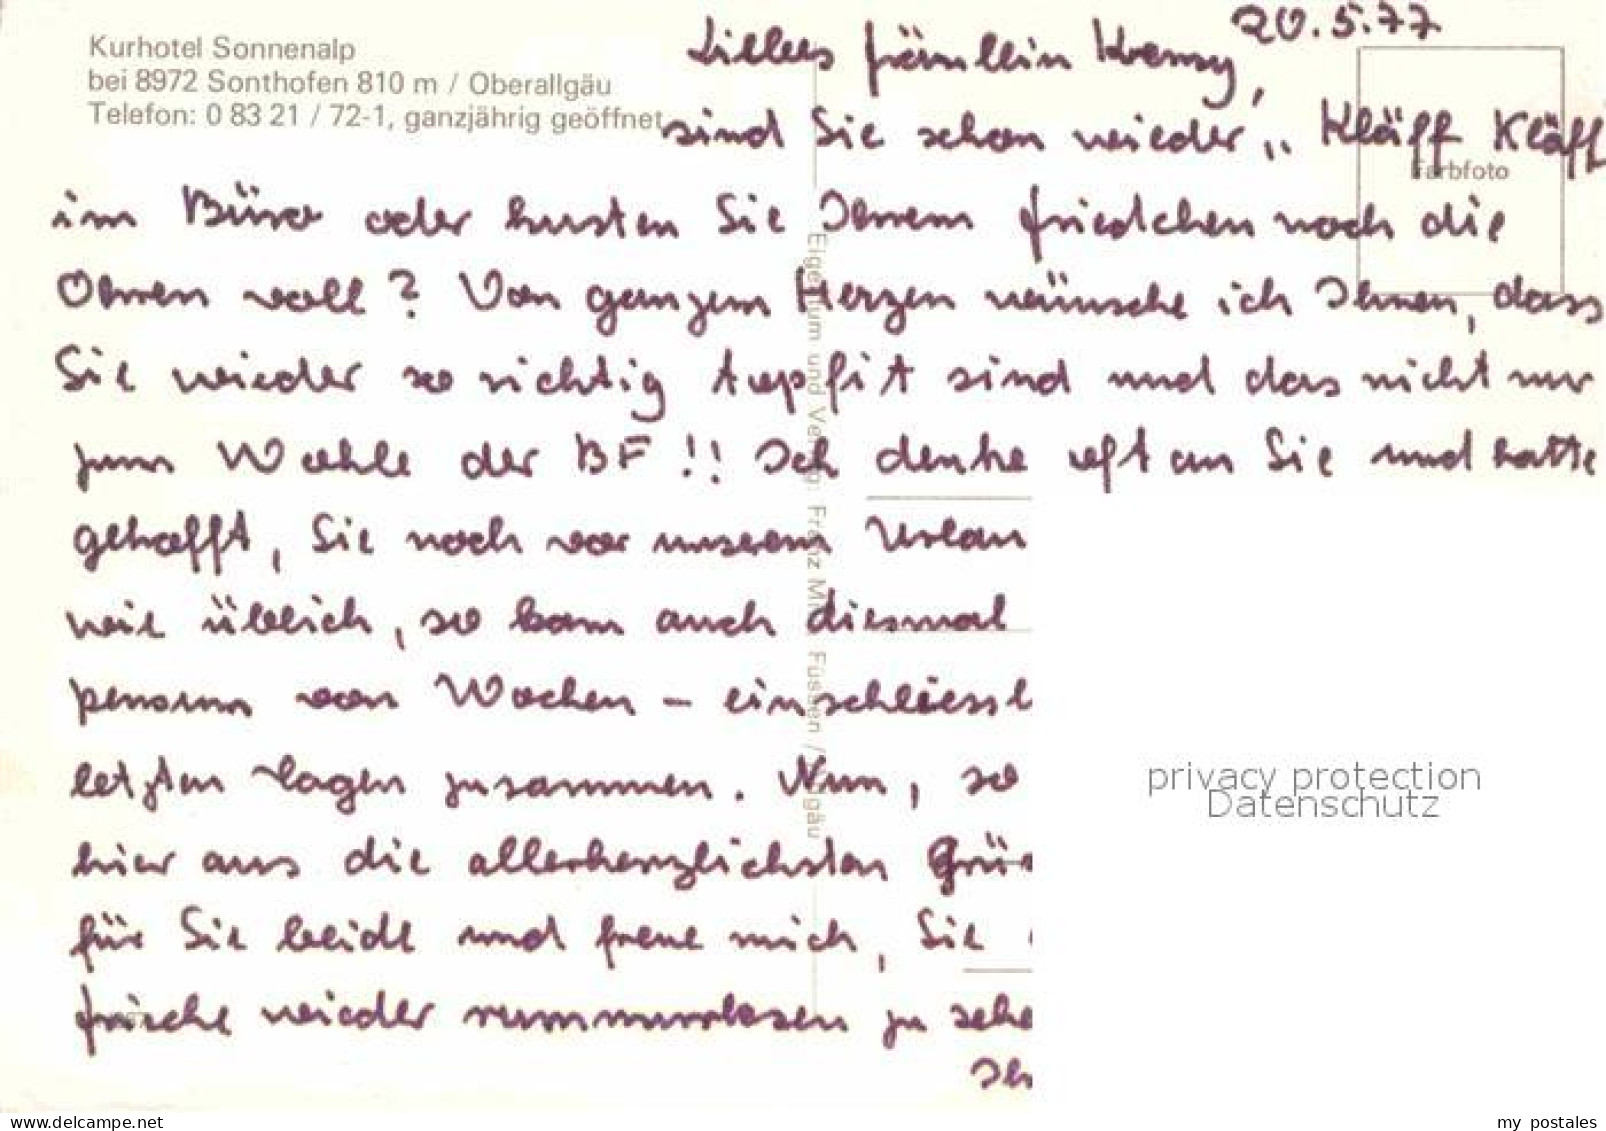 Kurhotel Sonnenalp
bei 8972 Sonthofen 810 m / Oberallgäu
Telefon: 0 83 21 / 72-1, ganzjährig geöffnet
20.5.77
Liebes Fräulein
sind Sie schon wieder „ Kläff Kläff
im Büro oder husten Sie Ihrem Friedchen noch die
Ohren voll? Von ganzem Herzen wünsche ich Ihnen, dass
Sie wieder so richtig topfit sind und das nicht nur
zum Wohle der BF!! Ich denke oft an Sie und hatte
gehofft, Sie noch vor unserem Urlau
wie üblich, so kam auch diesmal
pensum von Wochen - einschliessl
letzten Tagen zusammen. Nun, so
hier aus die allerherzlichsten Grüs
für Sie beide und freue mich, Sie
frische wieder rumwurlesen zu sehe
Ih
Farbfoto
Eigentum und Verlag: Franz Milz, Füssen / Allgäu
privacy protection
Datenschutz
www.delcampe.net
my_postales